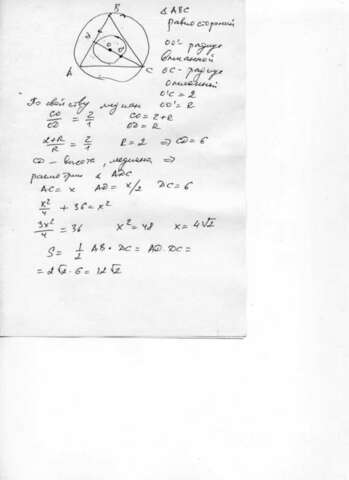 B
D
O
O'
A
C
△ ABC
равносторонний
OO' - радиус
вписанной
OC - радиус
описанной
O'C = 2
По свойству медиан OO' = R
CO/OD = 2/1 CO = 2+R
OD = R
2+R/R = 2/1 R = 2 ⇒ CD = 6
CD – высота, медиана ⇒
рассмотрим △ ADC
AC = x AD = x/2 DC = 6
x²/4 + 36 = x²
3x²/4 = 36 x² = 48 x = 4√2
S = 1/2 AB · DC = AD · DC =
= 2√2 · 6 = 12√2